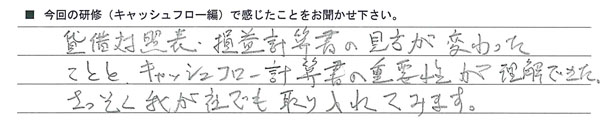 ■ 今回の研修（キャッシュフロー編）で感じたことをお聞かせ下さい。
貸借対照表・損益計算書の見方が変わった
ことと、キャッシュフロー計算書の重要性が理解できた。
さっそく我が社でも取り入れてみます。